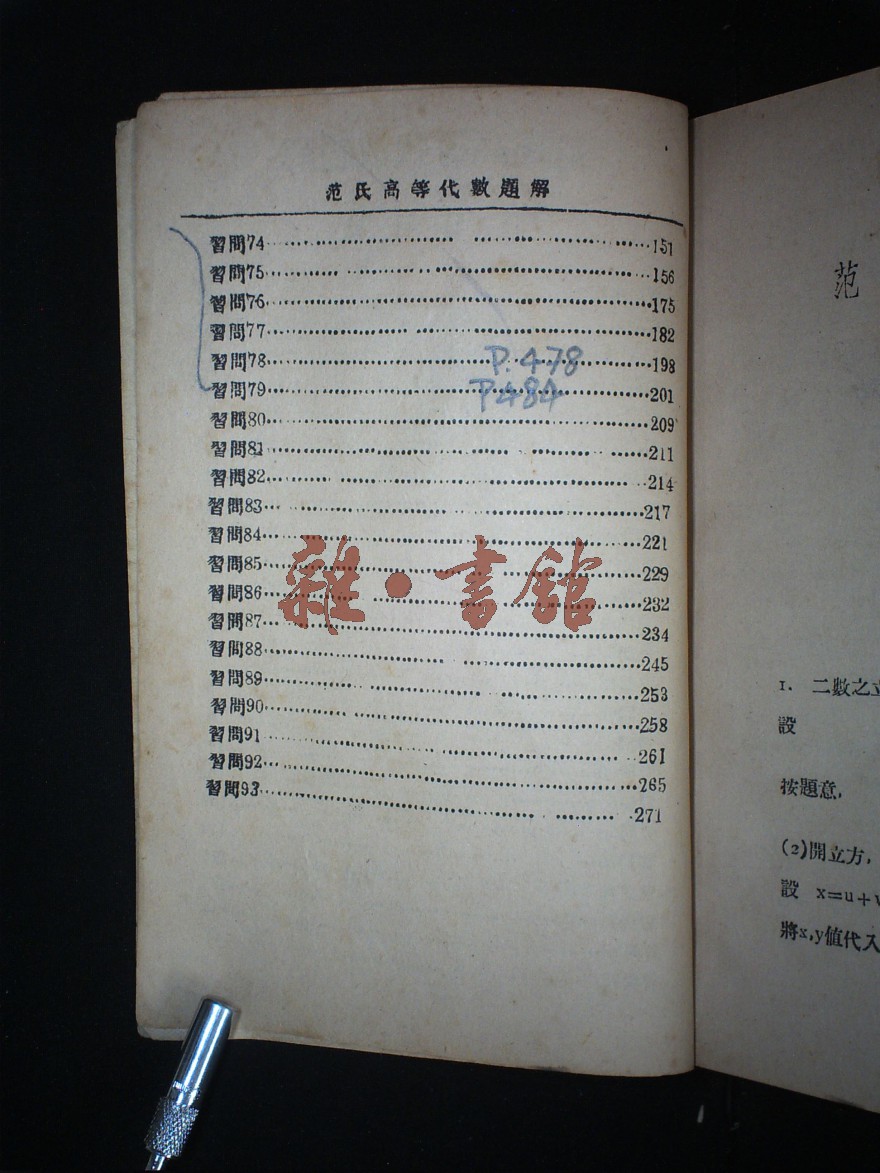 范氏高等代數題解
習問74 151
習問75 156
習問76 175
習問77 182
習問78 198
P.478
習問79 201
P484
習問80 209
習問81 211
習問82 214
習問83 217
習問84 221
習問85 229
習問86 232
雜·書館
習問87 234
習問88 245
習問89 253
習問90 258
習問91 261
習問92 265
習問93 271
范
1. 二數之立
設
按題意,
(2)開立方,
設 x=u+v
將x,y值代入